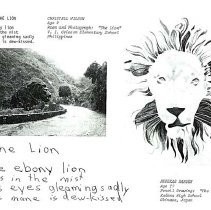 HE LION
the mist
gleaming sadly
is dew-kissed.
Age 9
Poem and Photograph: "The Lion"
Elementary School
Philippines
ne Lion
e ebony lion
s in the mist
s eyes gleaming sadly
s mane is dew-kissed
Age 17
Pencil Drawing: "The
High School
Okinawa, Japan